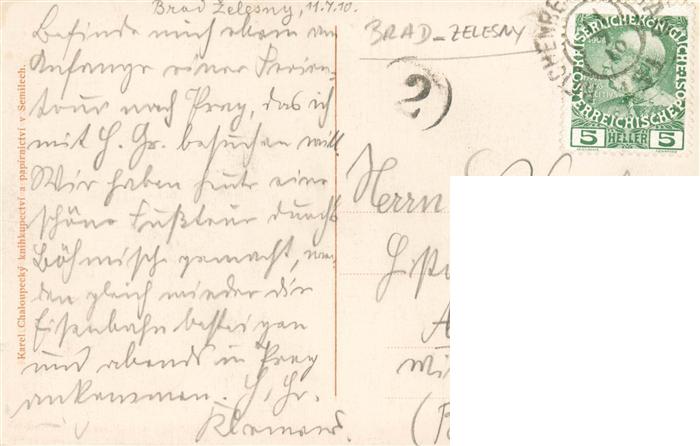 Brad Želesny, 11.7.10.
Befinde mich eben am
Anfange einer Ferien-
tour nach Prag, das ich
mit H. Gr. besuchen will.
Wir haben heute eine
schöne Fußtour durchs
Böhmische gemacht, wer-
den gleich wieder die
Eisenbahn besteigen
und abends in Prag
ankommen. H. Gr.
Karel Chaloupecký knihkupectví a papírnictví v Semilech.
BRAD-ZELESNY
2
1908
KAISERLICHE KÖNIGLICHE
ÖSTERREICHISCHE POST
5 HELLER 5
Herrn